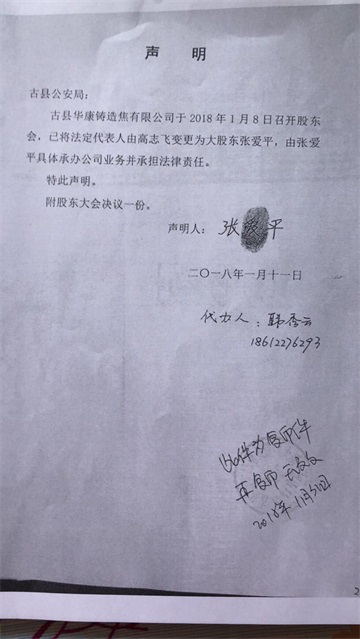 声 明
古县公安局：
古县华康铸造焦有限公司于2018年1月8日召开股东
会，已将法定代表人由高志飞变更为大股东张爱平，由张爱
平具体承办公司业务并承担法律责任。
特此声明。
附股东大会决议一份。
声明人：张爱平
二〇一八年一月十一日
代办人：韩香云
18612276293
此件为复印件
再复印无效
2018年11月31日
2